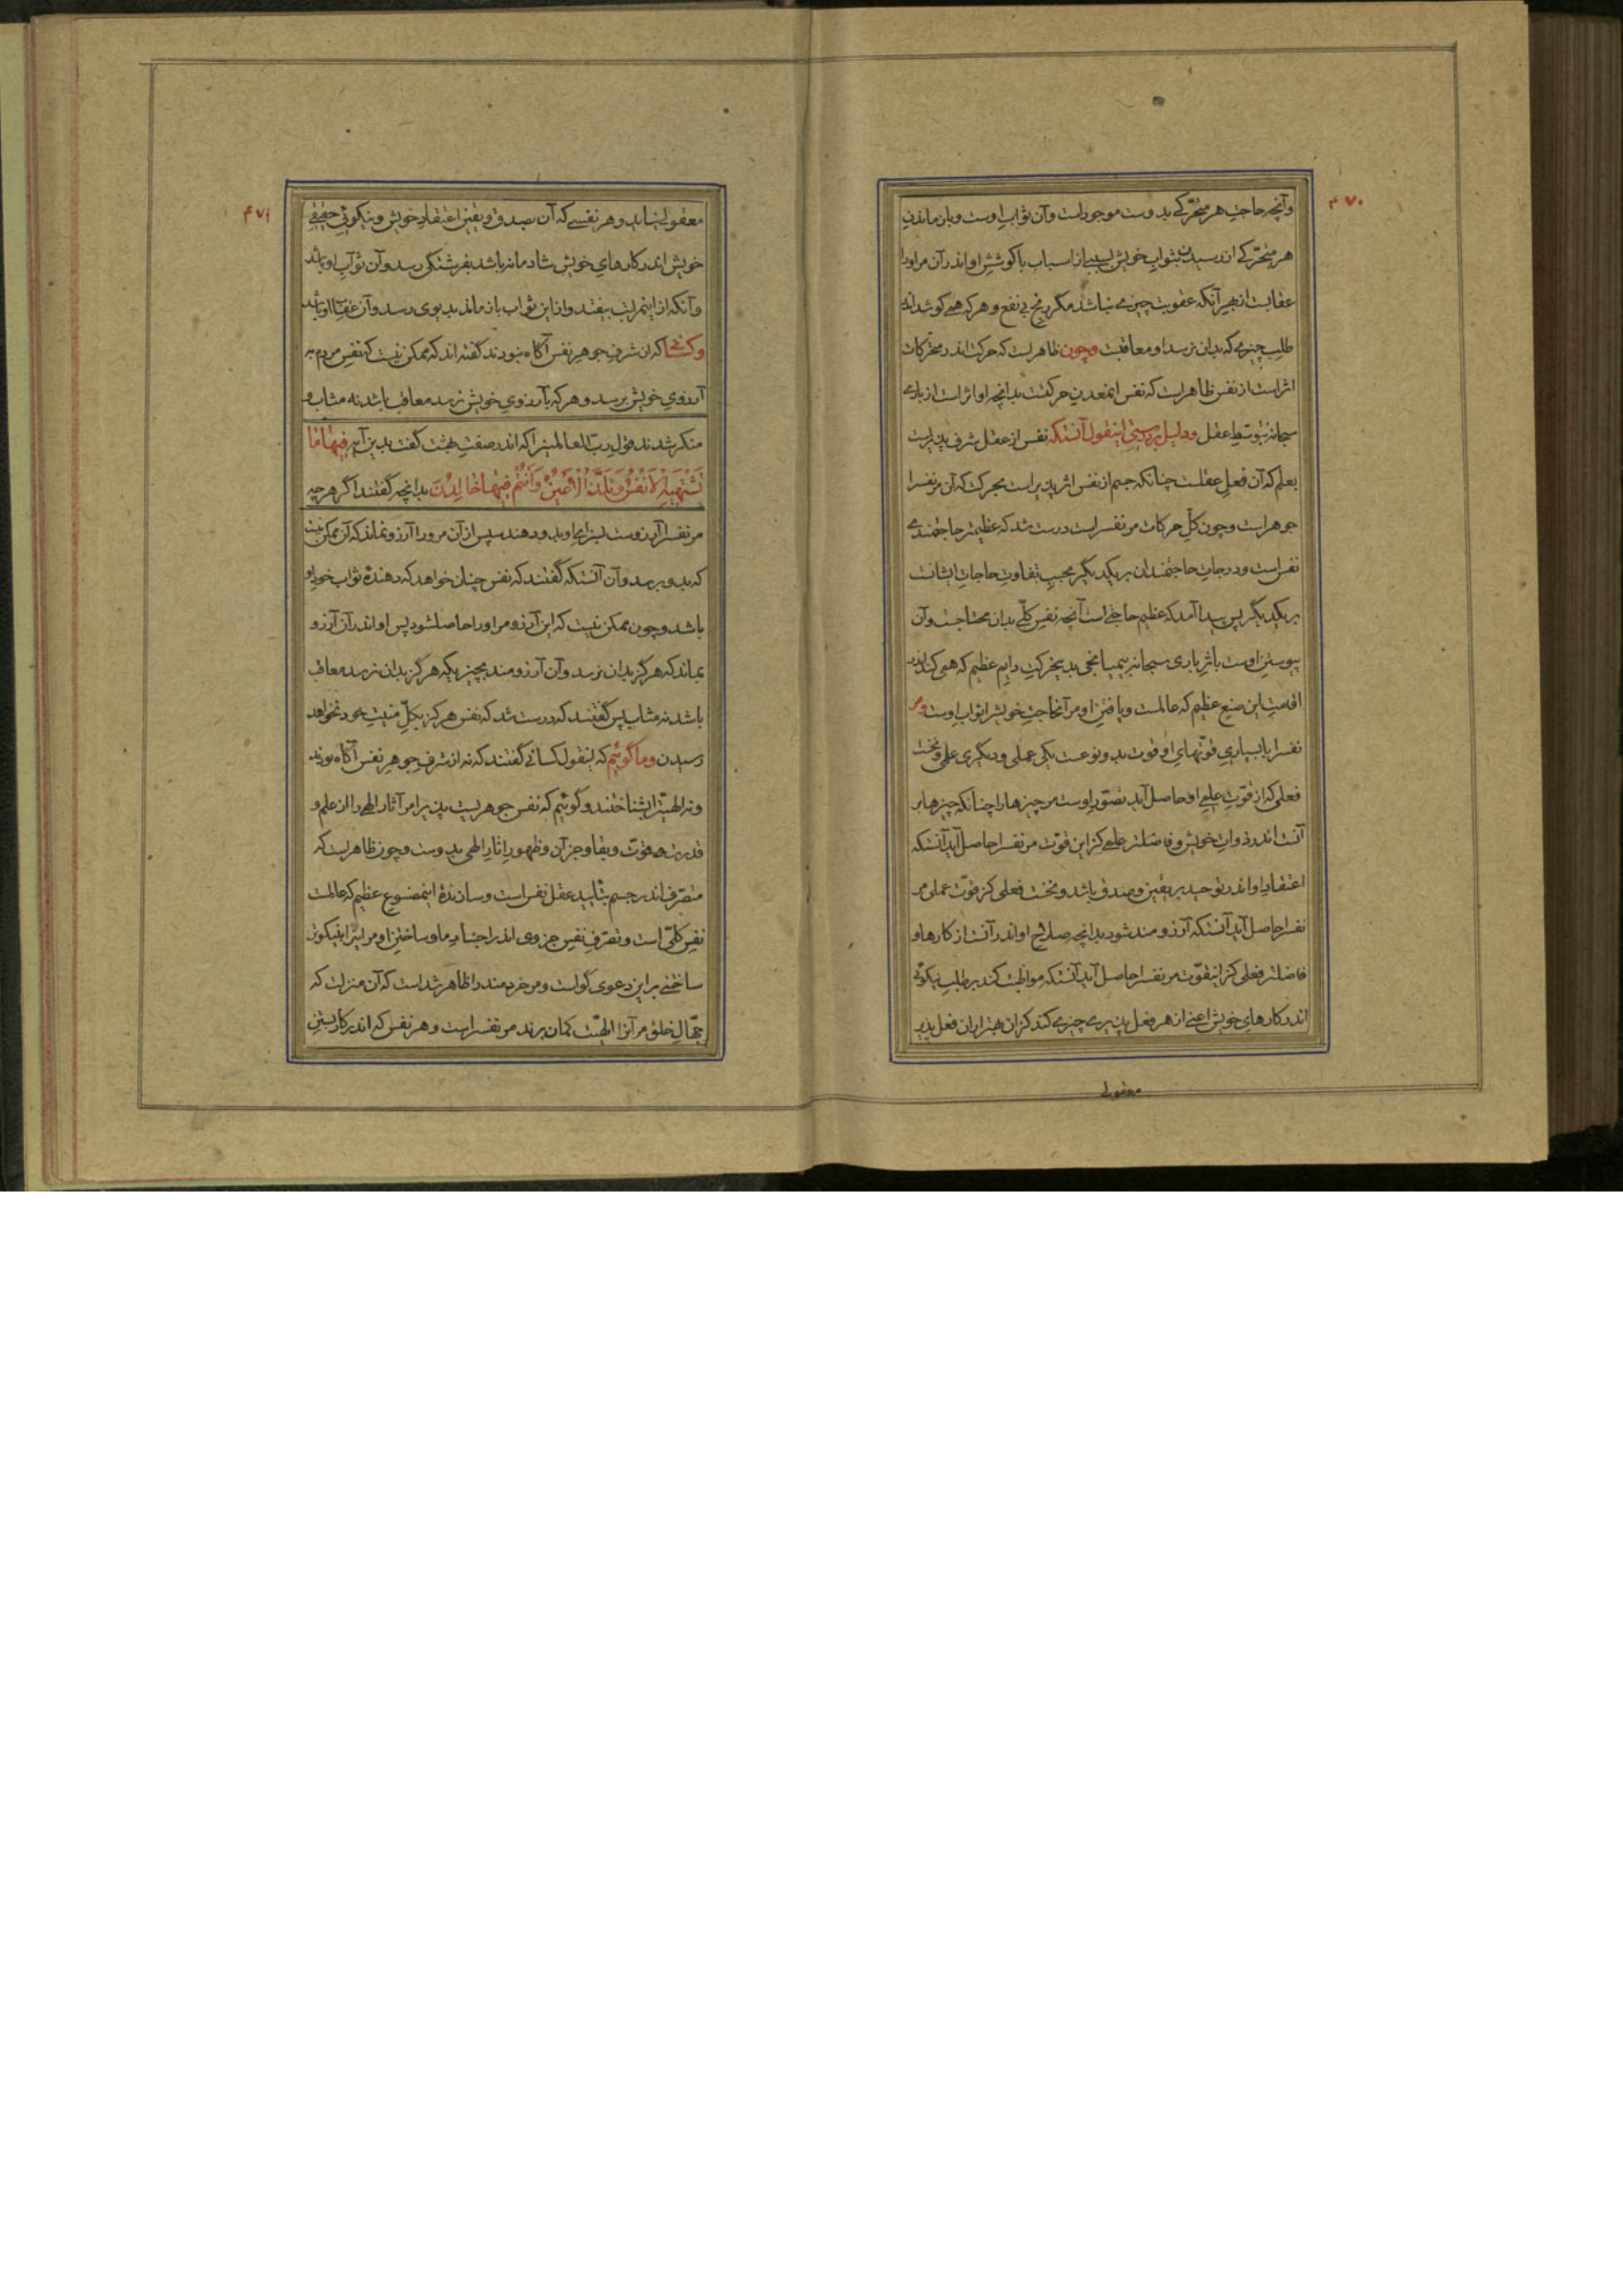 ۴۷۰
وآنچه حاجت هر متحرّکے بدوست موجود است وآن ثواب اوست وباز ماندن
هر متحرّکے از رسیدن بثوابِ خویش بسببے از اسباب با کوشش او اندر آن مر اورا
عقابست از بهر آنکه عقوبت چیزے نباشد مگر رنج بی نفع وهر که همے کوشد اندر
طلبِ چیزے که بدان نرسد او معاقبت وچون ظاهر است که حرکت اندر متحرّکات
اثر است از نفس ظاهر است که نفس اینمعدن حرکتست بدانچه او اثر است از باری
سبحانه بتوسّط عقل ودلیل بر درستیِ اینقول آنستکه نفس از عقل شرف پذیر است
بعلم که آن فعل عقلست چنانکه جسم از نفس اثر پذیر است بحرکت که آن مر نفسرا
جوهر است وچون کلِّ حرکات مر نفسراست درست شد که عظیمتر حاجتمندے
نفس است ودرجاتِ حاجتمندان بر یکدیگر بحسبِ تفاوتِ حاجاتِ ایشانست
بر یکدیگر پس پیدا آمد که عظیم حاجتے است آنچه نفسِ کلّے بدان محتاجست وآن
پیوستنِ اوست باثرِ باری سبحانه بیمیانجی بدین حرکتِ دایم عظیم که همی کند اندر
اقامتِ این صنع عظیم که عالمست ویافتنِ او مر آنحاجتِ خویشرا ثواب اوست ومر
نفسرا با بسیاریِ قوّتهایِ او قوت بدو نوعست یکی عملی ودیگری علمی ونخست
فعلی که از قوّتِ علمیِ او حاصل آید تصوّرِ اوست مر چیزهارا چنانکه چیزها بر
آنست اندر ذوات خویش وفاضلتر علمے کز این قوّت مر نفسرا حاصل آید آنستکه
اعتقادِ او اندر توحید بر یقین وصدق باشد ونخست فعلی کز قوّت عملی مر
نفسرا حاصل آید آنستکه آرزومند شود بدانچه صلاح او اندر آنست از کارها و
فاضلتر فعلی کز اینقوّت مر نفسرا حاصل آید آنستکه مواظبت کند بر طلبِ نیکوئی
اندر کارهایِ خویش اعنے از هر فعل پذیرے چیزے کند کزان بهتر از آن فعل پذیر
معقولی
۴۷۱
معقولی نیاید وهر نفسے که آن بصدق ویقین اعتقادِ خویش ونیکوئیِ حقیقی
خویش اندر کارهایِ خویش شادمانه باشد بفرشتگی رسد وآن ثوابِ او باشد
وآنکه از اینمرتبت بیفتد واز این ثواب باز ماند بدیوی رسد وآن عقابِ او باشد
وکسانے که از شرفِ جوهرِ نفس آگاه نبودند گفته اند که ممکن نیست که نفسِ مردم به
آرزویِ خویش برسد وهر که بآرزویِ خویش نرسد معاقب باشد نه مثاب و
منکر شدند قولِ ربّ العالمینرا که اندر صفتِ بهشت گفت بدین آیه فِیهَا مَا
تَشْتَهِیهِ الْاَنْفُسُ وَتَلَذُّ الْاَعْیُنُ وَاَنْتُمْ فِیهَا خَالِدُونَ بدانچه گفتند اگر هر چه
مر نفسرا آرزوست بسزای او بدو دهند سپس از آن مر ورا آرزو نماند که آن ممکن نیست
که بدو برسد وآن آنستکه گفتند که نفس چنان خواهد که دهندۀ ثواب خود او
باشد وچون ممکن نیست که این آرزو مر اورا حاصلشود پس او اندر آن آرزو
بماند که هرگز بدان نرسد وآن آرزومند بچیزیکه هرگز بدان نرسد معاقب
باشد نه مثاب پس گفتند که درست شد که نفس هرگز بکلِّ منیتِ خود نخواهد
رسیدن وما گوئیم که اینقول کسانے گفتند که نه از شرفِ جوهرِ نفس آگاه بودند
ونه الهیّترا بشناختند وگوئیم که نفس جوهریست پذیرا مر آثارِ الهے را از علم و
قدرت وقوّت وبقا وجز آن وظهورِ اثارِ الهی بدوست وچون ظاهر است که
متصرّف اندر جسم بتأیید عقل نفس است وسازندۀ اینمصنوعِ عظیم که عالمست
نفسِ کلّی است وتصرّفِ نفسِ جزوی اندر اجسادِ ما وساختنِ او مر اینرا بنیکوتر
ساختنے بر این دعوی گواست ومر خردمند را ظاهر شداست که آن منزلت که
جهّالِ خلق مر آنرا الهیّت گمان برند مر نفسراست وهر نفس که اندر کار بستنِ